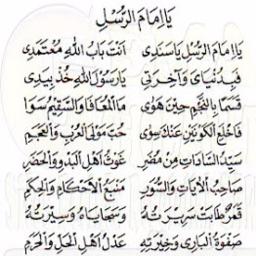 يَا إِمَامَ الرُّسْلِ
يَا إِمَامَ الرُّسْلِ يَا سَنَدِي أَنْتَ بَابُ اللهِ مُعْتَمَدِي
فَبِدُنْيَايَ وَآخِرَتِي يَا رَسُولَ اللهِ خُذْ بِيَدِي
قَسَمًا بِالنَّجْمِ حِينَ هَوَى مَا الْمُعَافَى وَالسَّقِيمُ سَوَا
فَاخْلَعِ الْكَوْنَيْنِ عَنْكَ سِوَى حُبِّ مَوْلَى الْعُرْبِ وَالْعَجَمِ
سَيِّدُ السَّادَاتِ مِنْ مُضَرِ غَوْثُ أَهْلِ الْبَدْوِ وَالْحَضَرِ
صَاحِبُ الْآيَاتِ وَالسُّوَرِ مَنْبَعُ الْأَحْكَامِ وَالْحِكَمِ
قَمَرٌ طَابَتْ سَرِيرَتُهُ وَسَجَايَاهُ وَسِيرَتُهُ
صَفْوَةُ الْبَارِي وَخِيرَتُهُ عَدْلُ أَهْلِ الْحِلِّ وَالْحَرَمِ